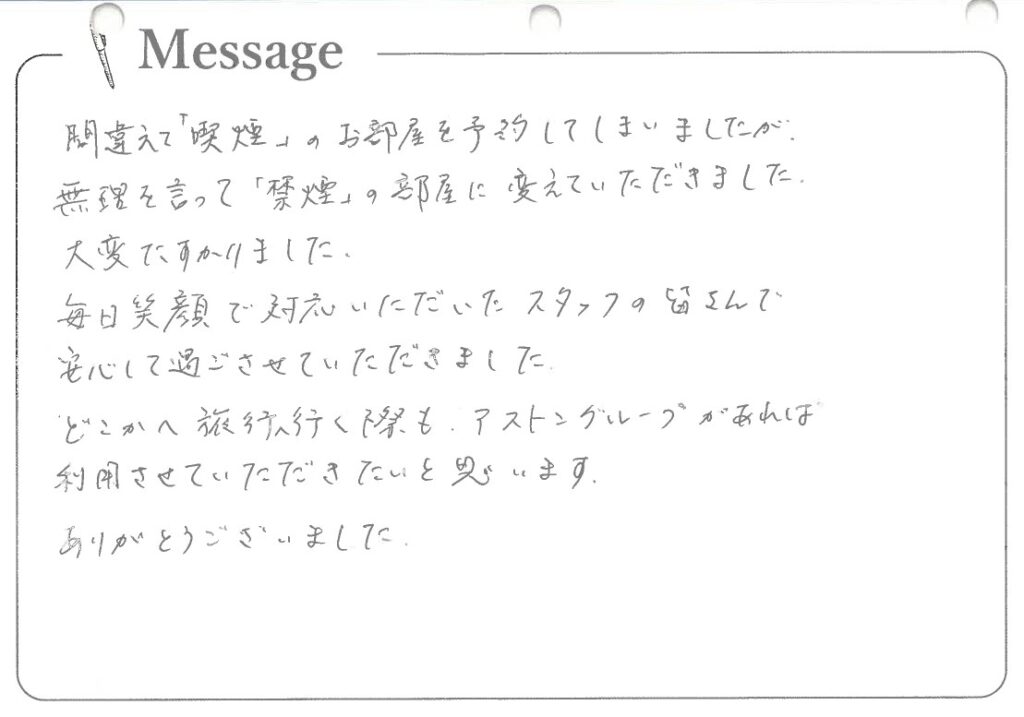 Message
間違えて「喫煙」のお部屋を予約してしまいましたが、
無理を言って「禁煙」の部屋に変えていただきました。
大変たすかりました。
毎日笑顔で対応いただいたスタッフの皆さんで
安心して過ごさせていただきました。
どこかへ旅行へ行く際も、アストングループがあれば
利用させていただきたいと思います。
ありがとうございました。